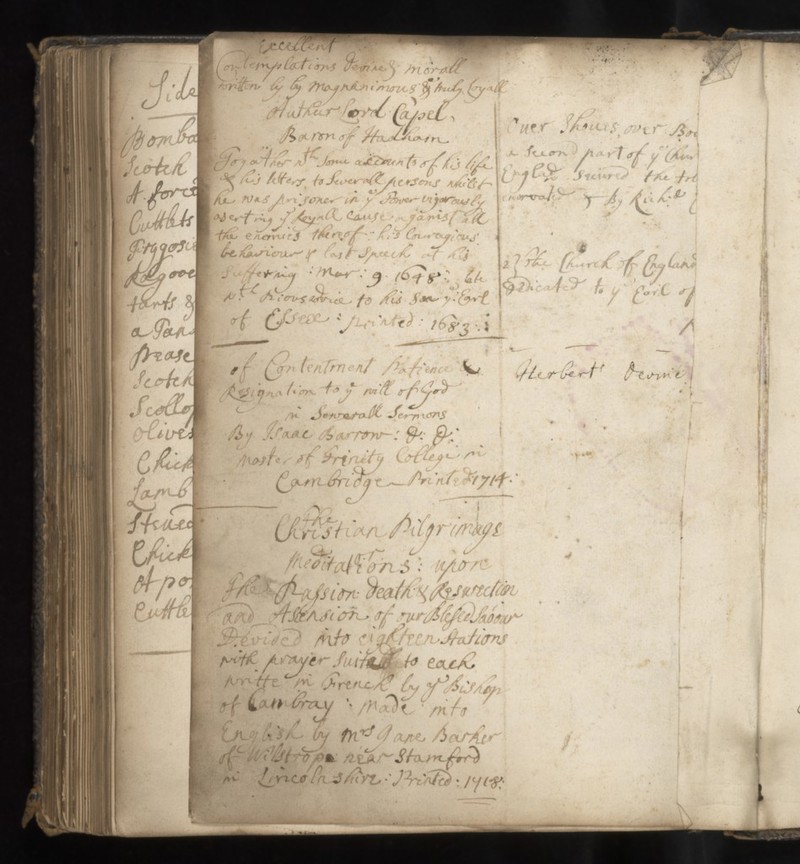 Side
Bomba
Scotch
A forc
Cuttlets
tarts &
a Tan
Pease
Scotch
Scollop
olives
Chick
Lamb
Stued
Chick
A po
Cuttle
Excellent
Contemplations devine & morall
written by by magnanimous & truly loyall
Authur Lord Capel,
Baron of Hadham
Togather wth some accounts of his life
& his letters, to severall persons whilst
he was prisoner in ye Tower vigorously
aserting ye Royall cause against all
the enemies thereof: his Couragious
behaviour & last speech at his
suffering: Mar: 9. 1648:
wth Pious advice to his Son ye: Earl
of Essex: printed: 1683:
of Contentment Patience &
Resignation to ye will of God
in Severall Sermons
By Isaac Barrow: D: D:
master of Trinity College in
Cambridge Printed 1714:
The
Christian Pilgrimage
Meditations: upon
The Passion Death & Resurection
and Asension of our Blessed Saviour
Devided into eighteen stations
with prayer suitall to each
writte in French by ye Bishop
of Cambray: made into
English by mrs Jane Barker
of Wilsthorp near Stamford
in Lincoln shire: Printed: 1718:
Over Shoues, over Boo
a second part of ye Chur
England secured the
& by Rich:d
2} The Church of England
Dedicated to ye Earl of
Herberts Devine